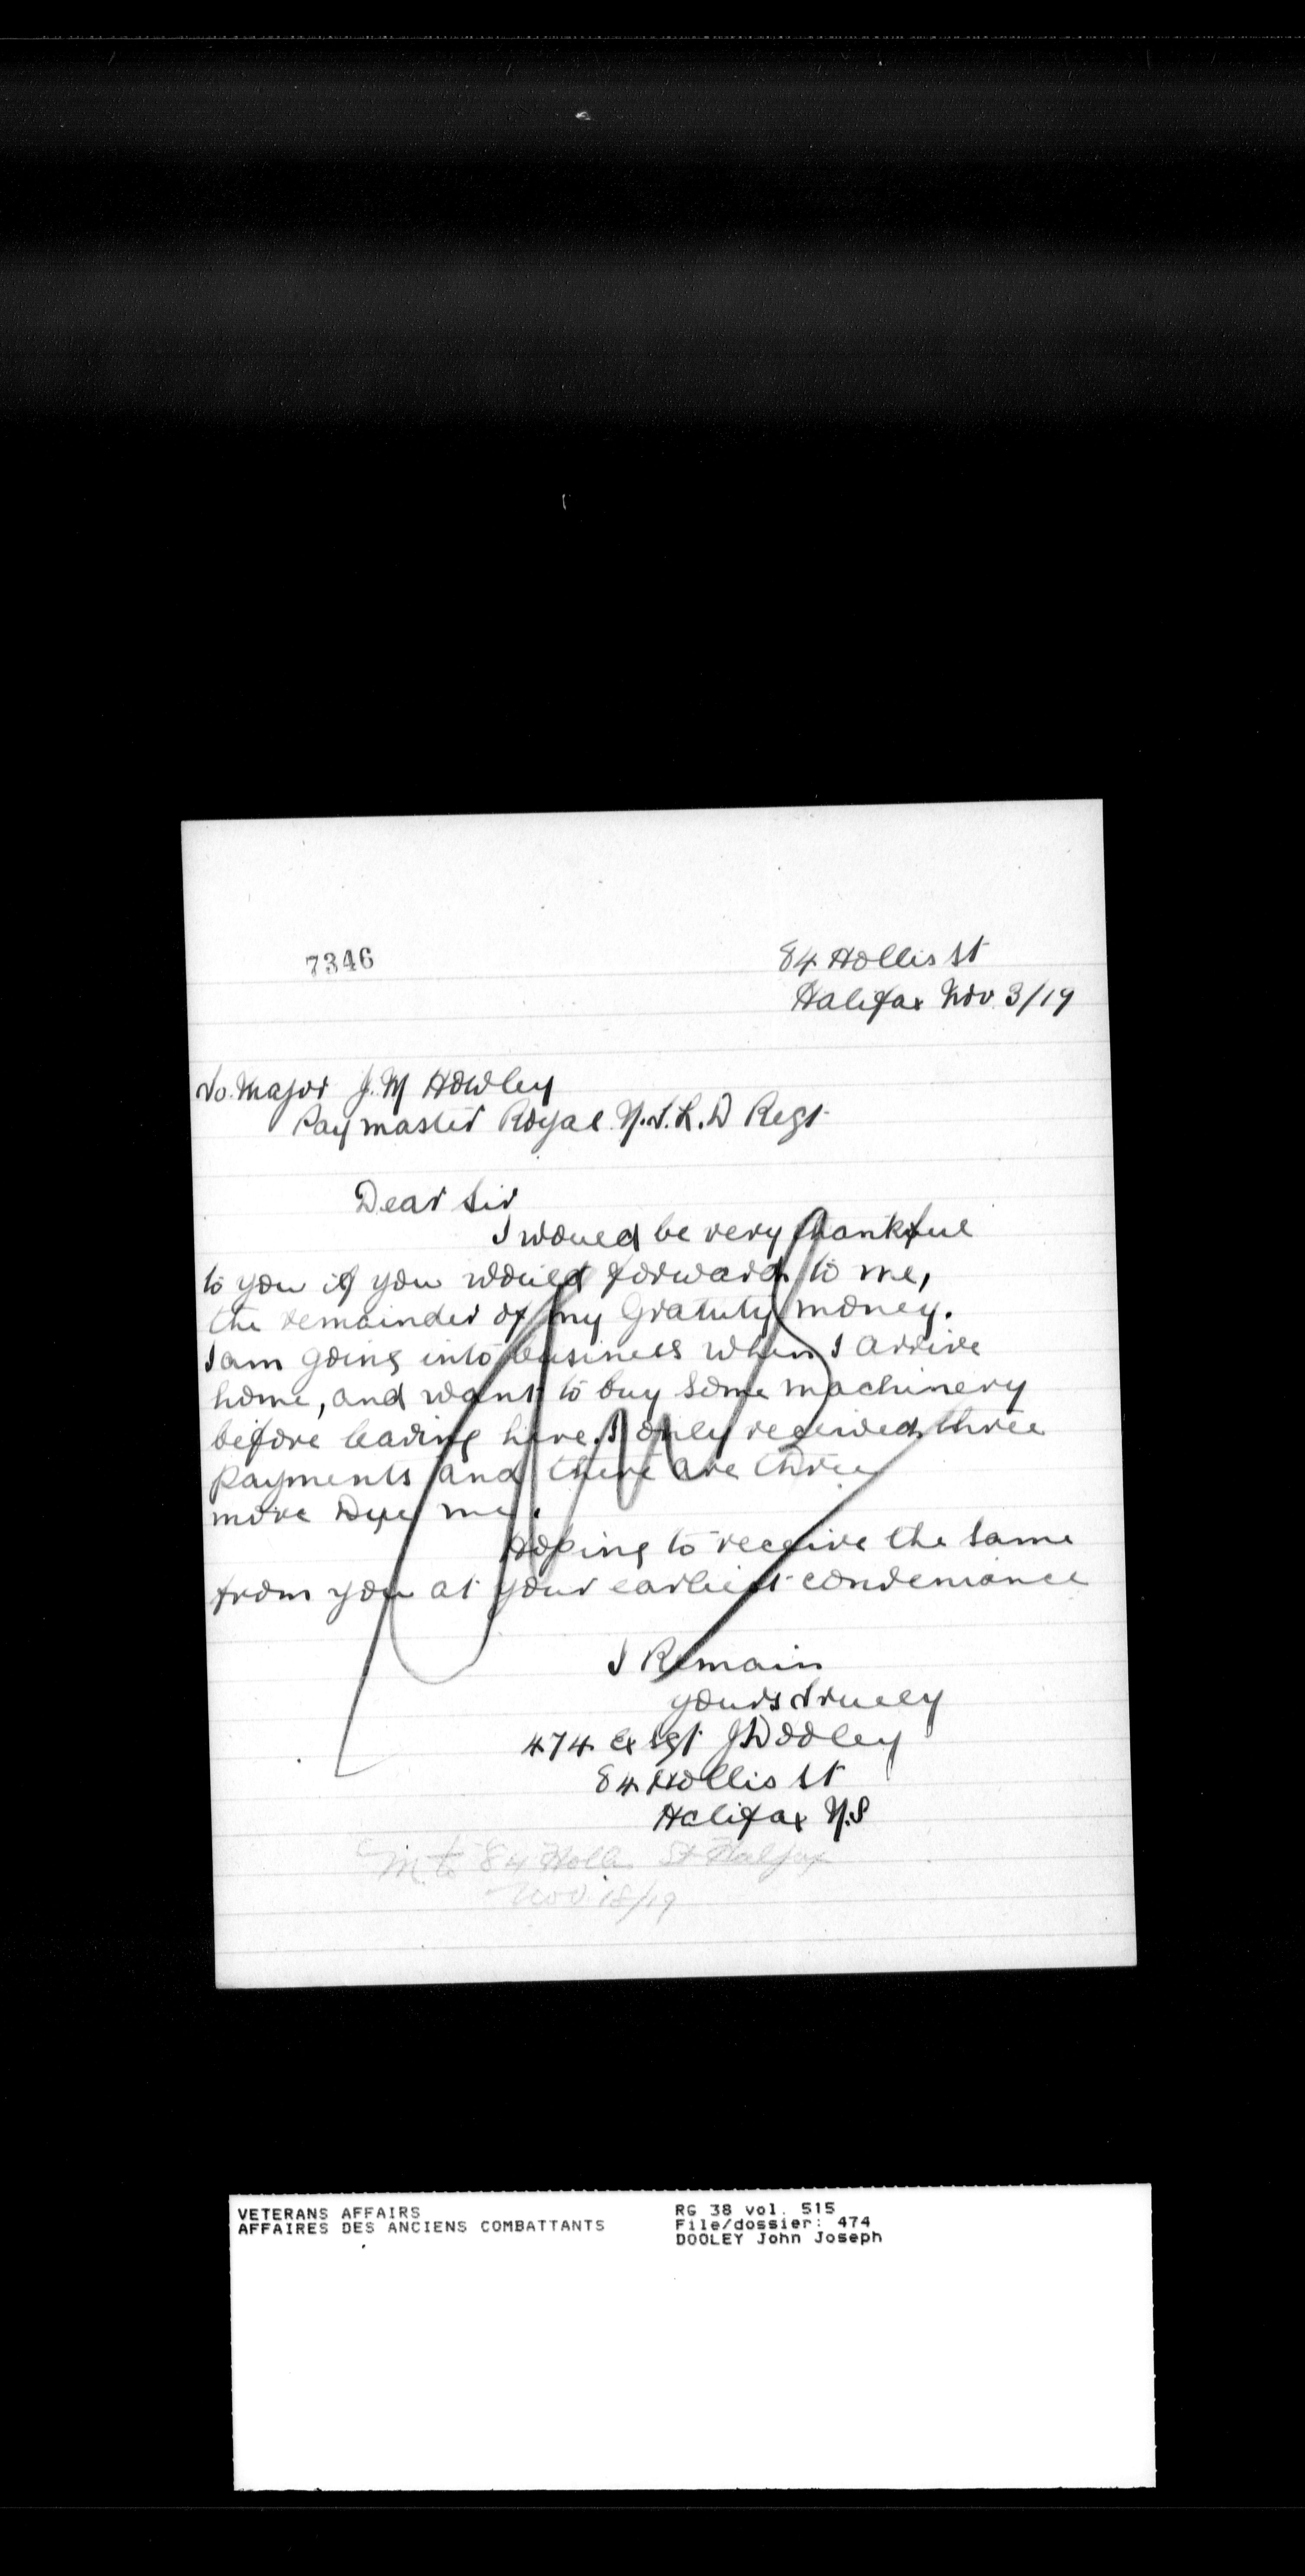 7346
84 Hollis St
Halifax Nov 3/19
To Major J. M Howley
Paymaster Royal N.F.L.D Regt
Dear Sir
I would be very thankful
to you if you would forward to me,
the remainder of my Gratuty money.
I am going into business when I arrive
home, and want to buy some machinery
before leaving here. I only received three
payments and there are three
more Due me.
Hoping to receive the same
from you at your earliest convenience
I Remain
yours Truely
474 Ex Sgt J Dooley
84 Hollis St
Halifax N.S
to 84 Hollis St Halifax
Nov 18/19
VETERANS AFFAIRS
AFFAIRES DES ANCIENS COMBATTANTS
RG 38 vol. 515
File/dossier: 474
DOOLEY John Joseph